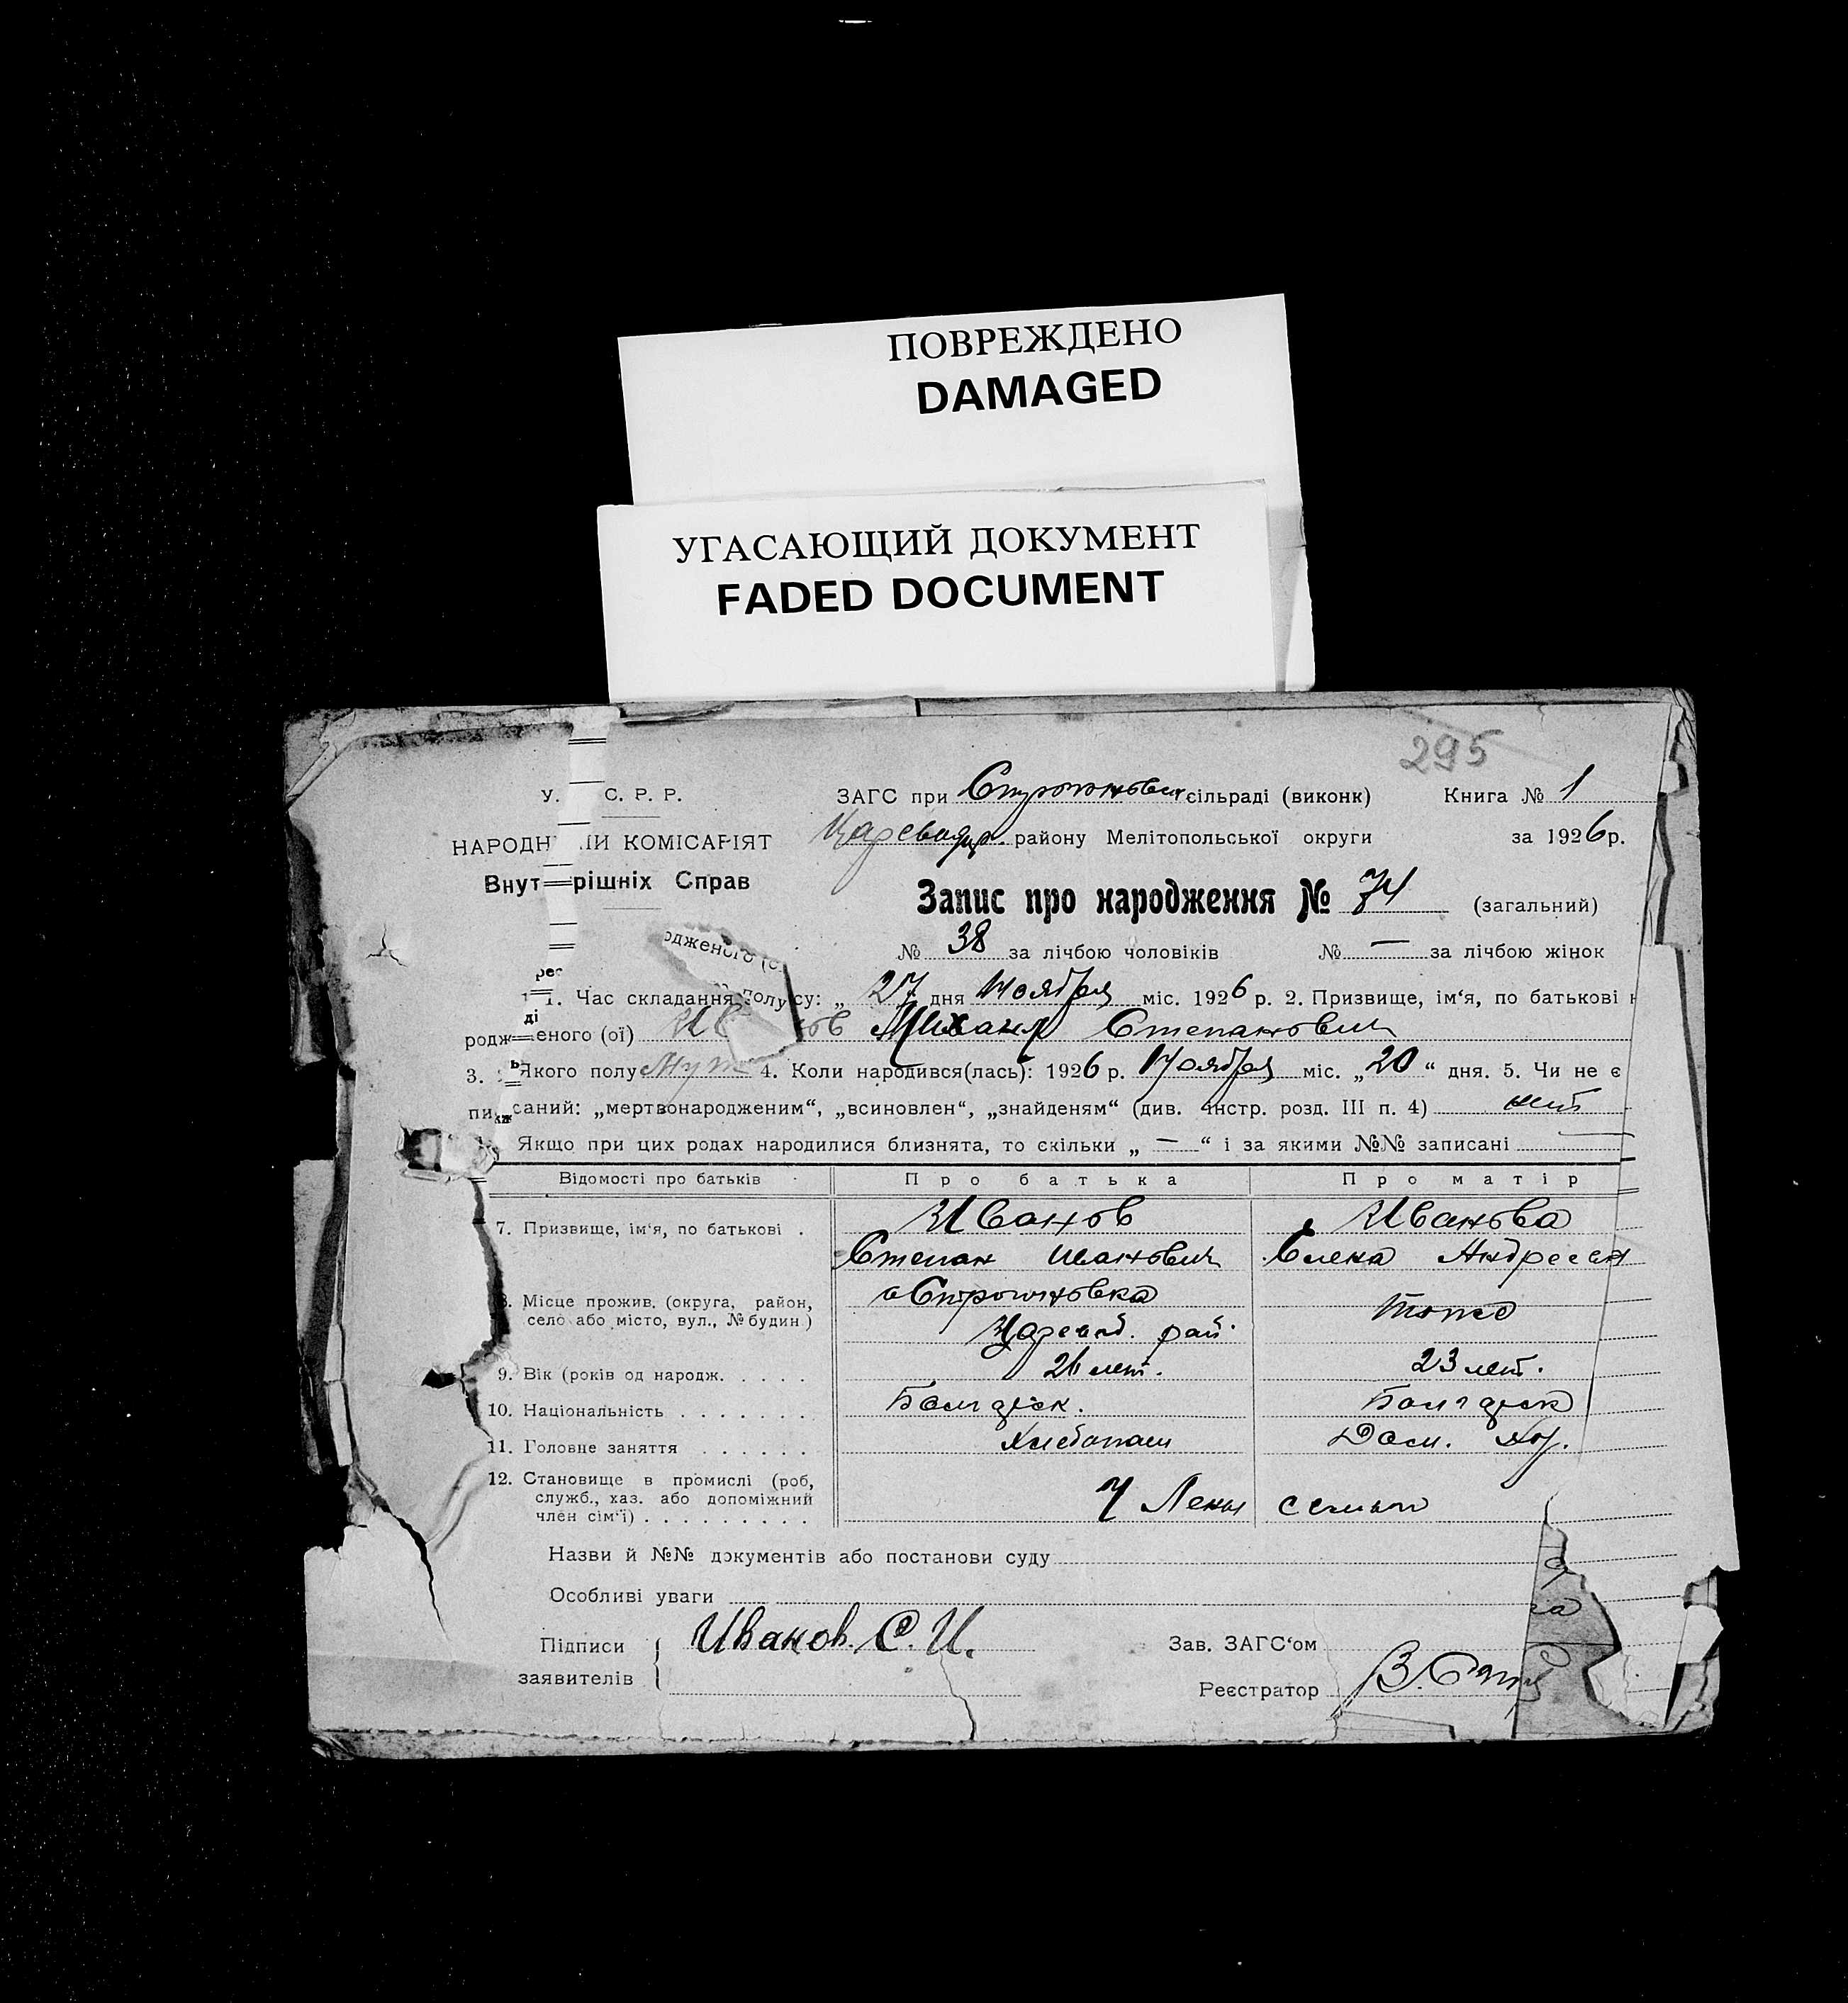 ПОВРЕЖДЕНО
DAMAGED
УГАСАЮЩИЙ ДОКУМЕНТ
FADED DOCUMENT
295
У. С. Р. Р.
ЗАГС при сільраді (виконк) Книга № 1
НАРОДН ИЙ КОМІСАРІЯТ
району Мелітопольської округи за 1926 р.
Внут рішніх Справ
Запис про народження № 74 (загальний)
одженого (о
№ 38 за лічбою чоловіків № — за лічбою жінок
1. Час складання су: „ 27 дня Ноября міс. 1926 р. 2. Призвище, ім‘я, по батькові н
родж еного (ої) ов Михаил Степанович
3. Якого полу Муж 4. Коли народився(лась): 1926 р. Ноября міс. „20“ дня. 5. Чи не є
пи саний: „мертвонародженим“, „всиновлен“, „знайденям“ (див. інстр. розд. III п. 4) нет
Якщо при цих родах народилися близнята, то скільки „ — “ і за якими №№ записані —
Відомості про батьків Про батька Про матір
7. Призвище, ім‘я, по батькові . Иванов Иванова
Степан Иванович Елена Андреевн
8. Місце прожив. (округа, район, село або місто, вул., № будин.) тоже
рай.
9. Вік (років од народж. . . . . 26 лет. 23 лет.
10. Національність . . . . . . . Болгарск. Болгарск
11. Головне заняття . . . . . . Хлебопаш Дом. хоз.
12. Становище в промислі (роб,
служб., хаз. або допоміжний
член сім‘ї) . . . . . . . . . Члены семьи
Назви й №№ документів або постанови суду
Особливі уваги
Підписи заявителів Иванов. С. И.
Зав. ЗАГС‘ом
Реєстратор